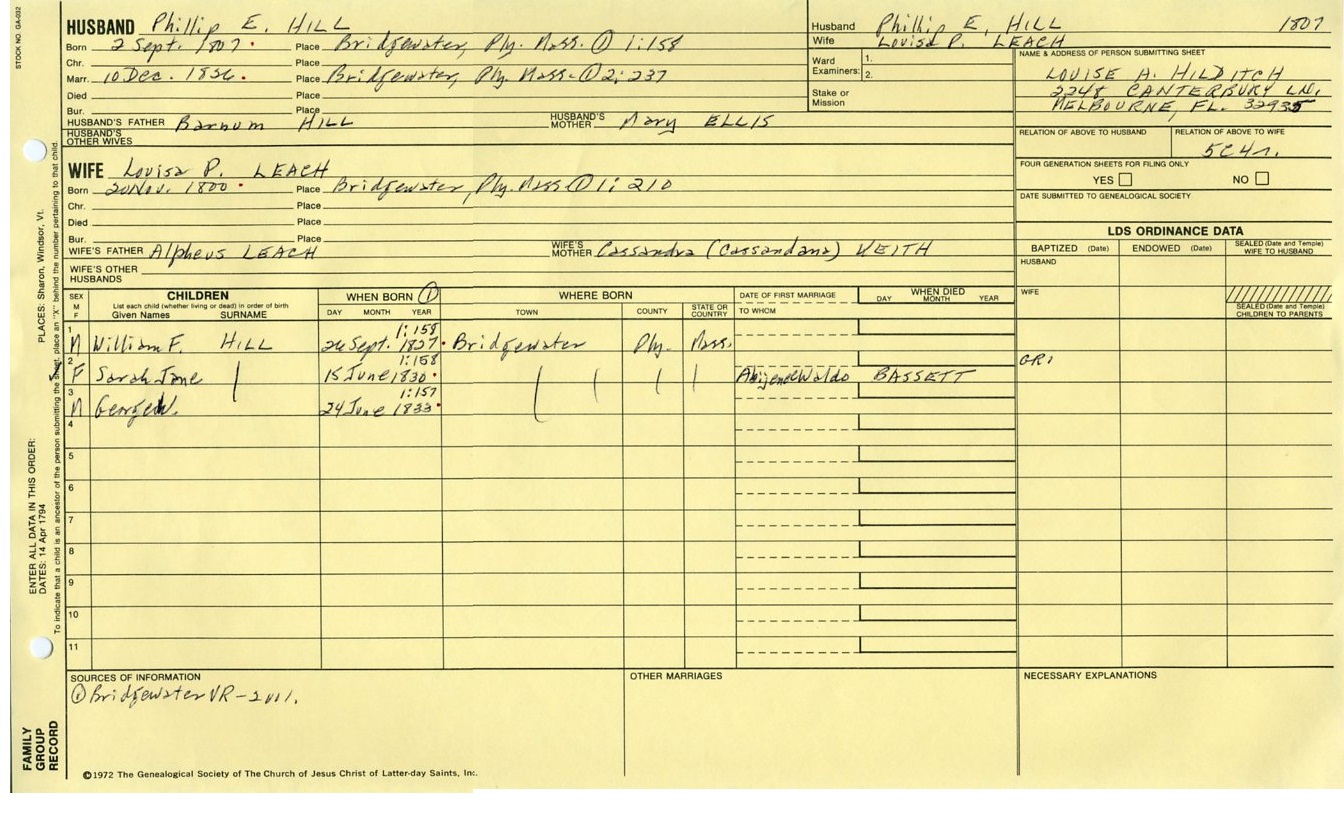 STOCK NO. GA-032
HUSBAND Phillip E. HILL
Born 2 Sept. 1807 Place Bridgewater, Ply. Mass. ① 1:158
Chr. Place
Marr. 10 Dec. 1826 Place Bridgewater, Ply Mass. ① 2:237
Died Place
Bur. Place
HUSBAND'S FATHER Barnum HILL HUSBAND'S MOTHER Mary ELLIS
HUSBAND'S OTHER WIVES
Husband Phillip E. HILL 1807
Wife Louisa P. LEACH
Ward Examiners: 1.
2.
Stake or Mission
NAME & ADDRESS OF PERSON SUBMITTING SHEET
LOUISE A. HILDITCH
2248 CANTERBURY LN.
MELBOURNE, FL. 32935
RELATION OF ABOVE TO HUSBAND RELATION OF ABOVE TO WIFE
5C4r.
FOUR GENERATION SHEETS FOR FILING ONLY
YES NO
DATE SUBMITTED TO GENEALOGICAL SOCIETY
WIFE Louisa P. LEACH
Born 20 Nov. 1800 Place Bridgewater, Ply. Mass ① 1:210
Chr. Place
Died Place
Bur. Place
WIFE'S FATHER Alpheus LEACH WIFE'S MOTHER Cassandra (Cassandana) KEITH
WIFE'S OTHER HUSBANDS
LDS ORDINANCE DATA
BAPTIZED (Date) ENDOWED (Date) SEALED (Date and Temple) WIFE TO HUSBAND
HUSBAND
WIFE
SEALED (Date and Temple) CHILDREN TO PARENTS
SEX M F CHILDREN List each child (whether living or dead) in order of birth Given Names SURNAME
WHEN BORN ① DAY MONTH YEAR
WHERE BORN TOWN COUNTY STATE OR COUNTRY
DATE OF FIRST MARRIAGE TO WHOM
WHEN DIED DAY MONTH YEAR
1 M William F. HILL 26 Sept. 1827 1:158 Bridgewater Ply. Mass.
2 F Sarah Jane 15 June 1830 1:158 Abijene Waldo BASSETT GRI
3 M George W. 24 June 1833 1:157
4
5
6
7
8
9
10
11
SOURCES OF INFORMATION
① Bridgewater VR - 2 vol.
OTHER MARRIAGES
NECESSARY EXPLANATIONS
©1972 The Genealogical Society of The Church of Jesus Christ of Latter-day Saints, Inc.
FAMILY GROUP RECORD
ENTER ALL DATA IN THIS ORDER:
DATES: 14 Apr 1794
PLACES: Sharon, Windsor, Vt.
To indicate that a child is an ancestor of the person submitting the sheet, place an "X" behind the number pertaining to that child.